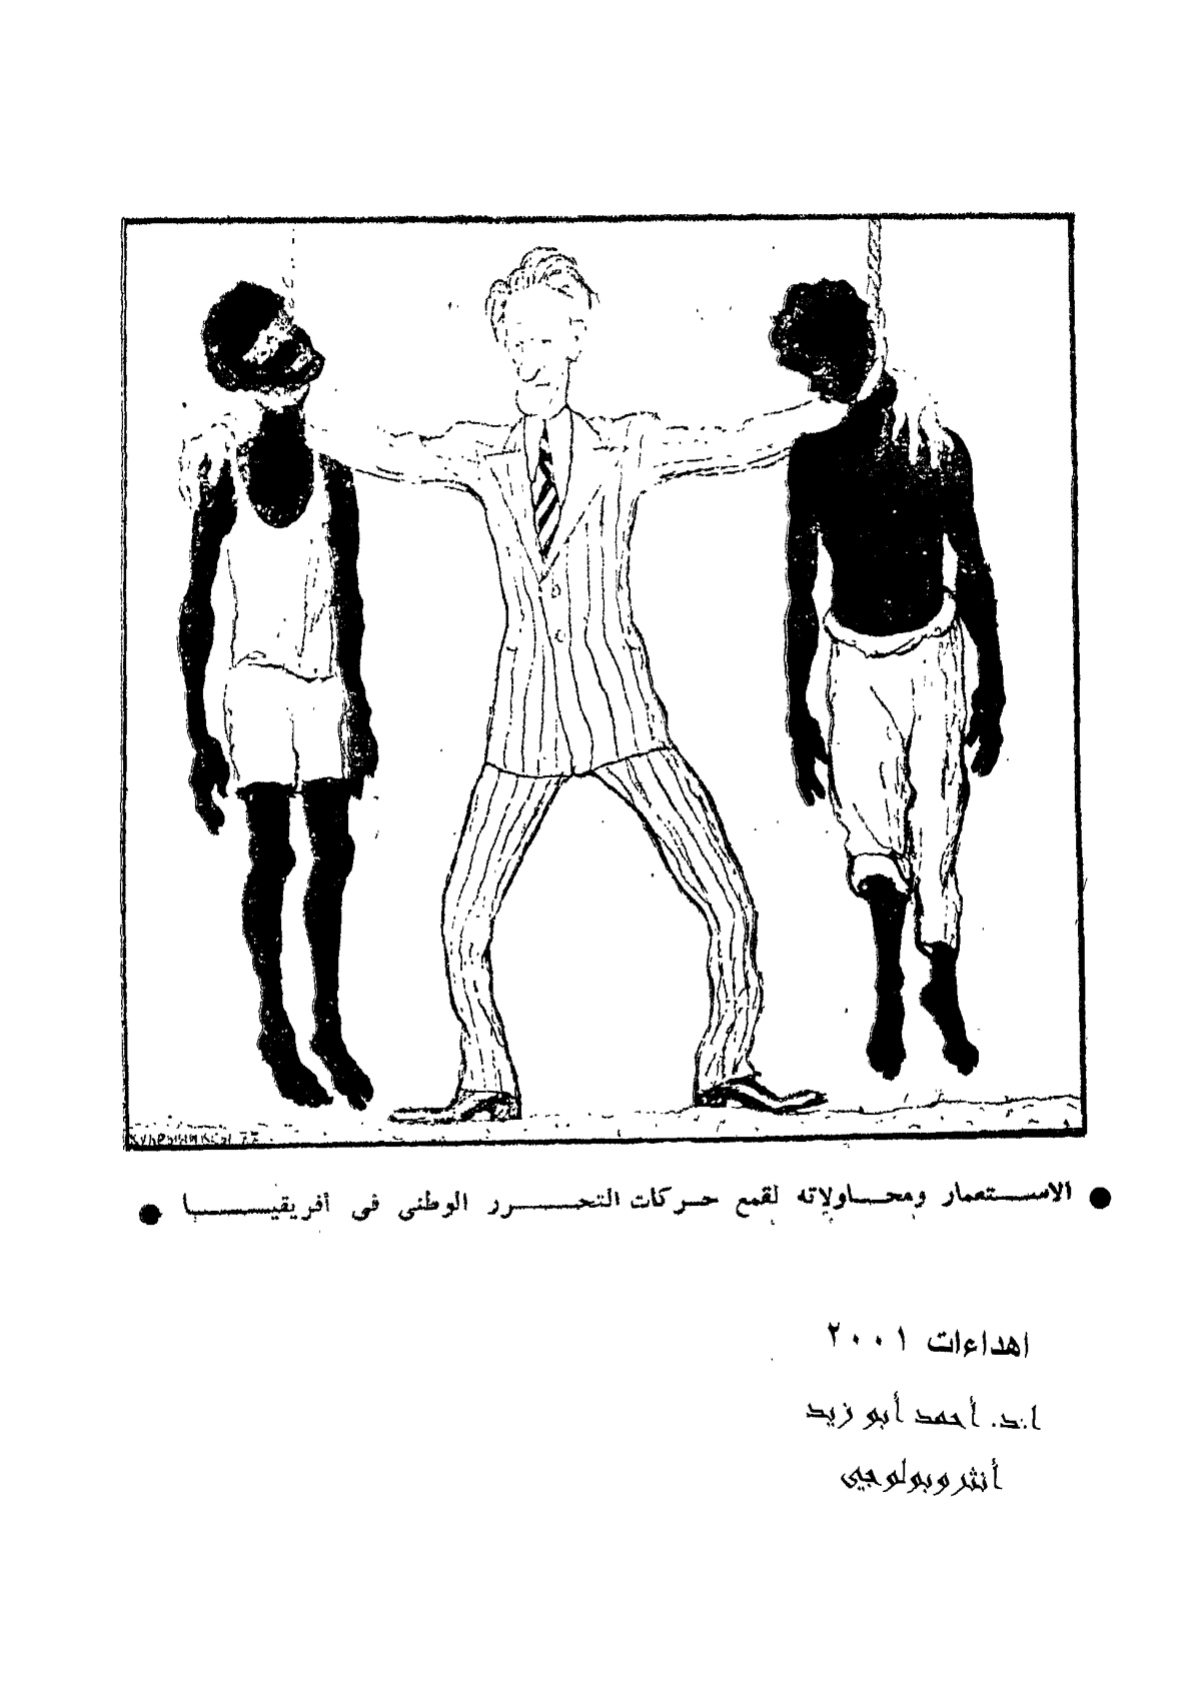 ● الاستعمار ومحاولاته لقمع حركات التحرر الوطنى فى أفريقيا ●
اهداءات ٢٠٠١
ا.د. أحمد أبو زيد
أنثروبولوجي